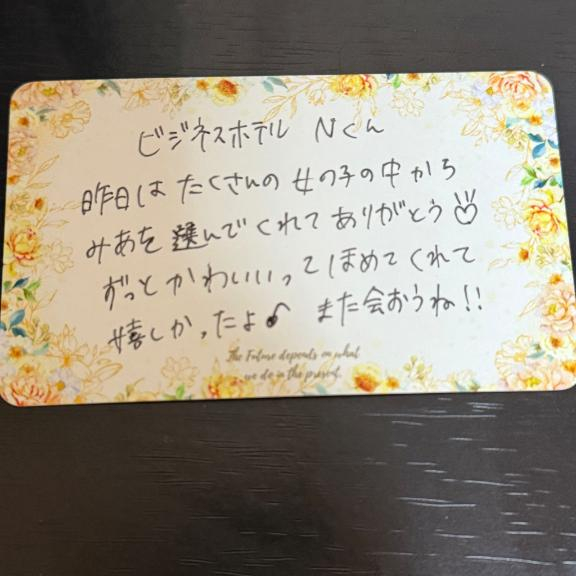 ビジネスホテル Nくん
昨日は たくさんの 女の子の中から
みあを 選んでくれて ありがとう♡
ずっと かわいいって ほめてくれて
嬉しかったよ♪ また会おうね!!
The Future depends on what
we do in the present.